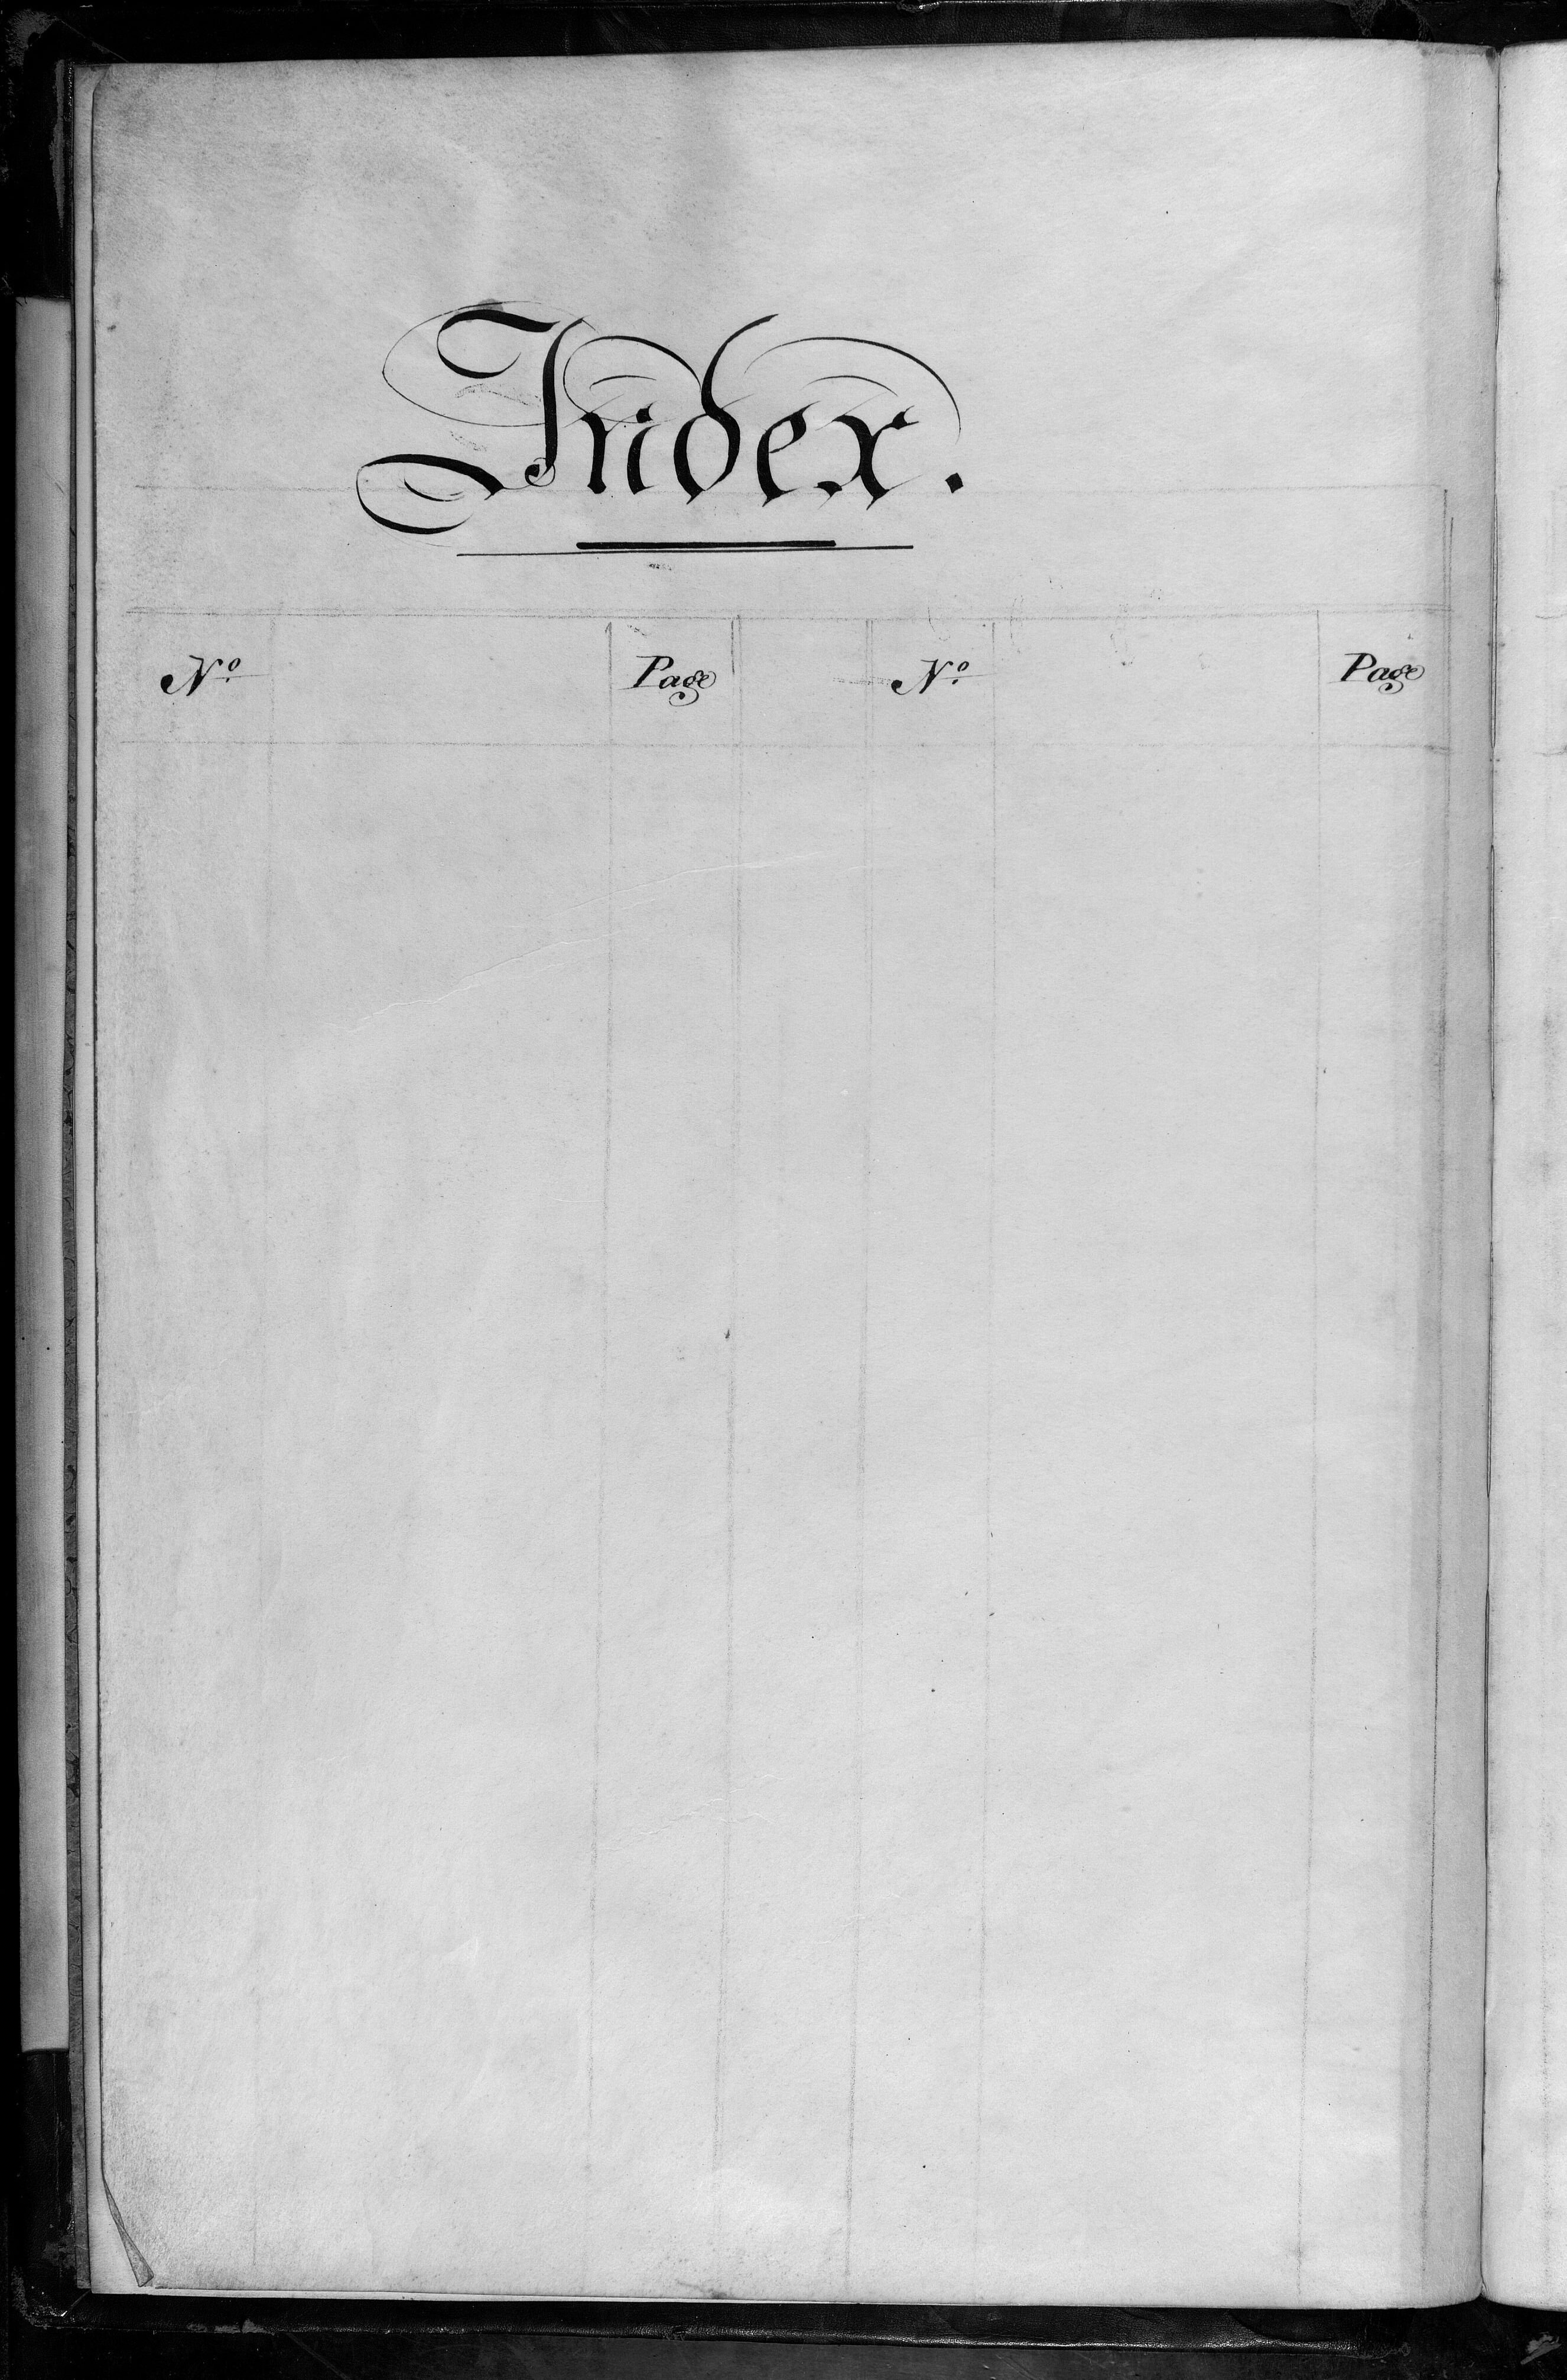 Index.
Nº Page Nº Page